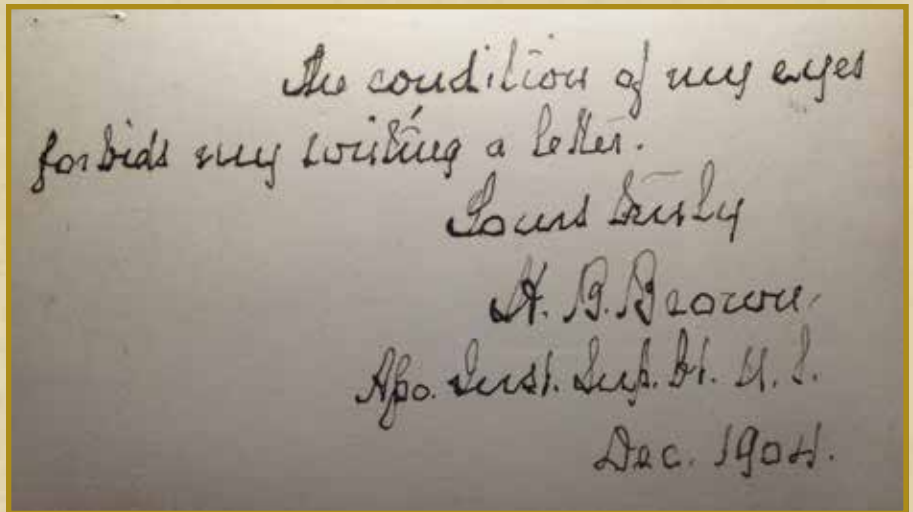 The condition of my eyes
forbids my writing a letter.
Yours truly
H. B. Brown
Asso. Just. Sup. Ct. U. S.
Dec. 1904.